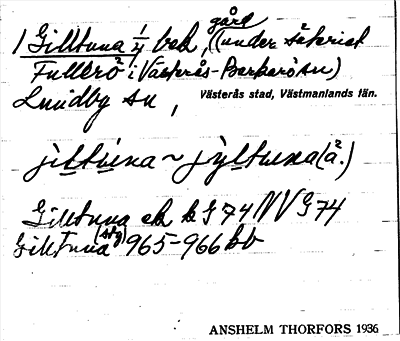 1 Gilltuna 1/4 bek, gård (under säteriet
Fullerö i Västerås-Barkarö sn)
Lundby sn, Västerås stad, Västmanlands län.
jiltuna ~ jyltuna (ä.)
Gilltuna ek bl G 74 NV G 74
Gilltuna (stg) 965-966 bb
ANSHELM THORFORS 1936